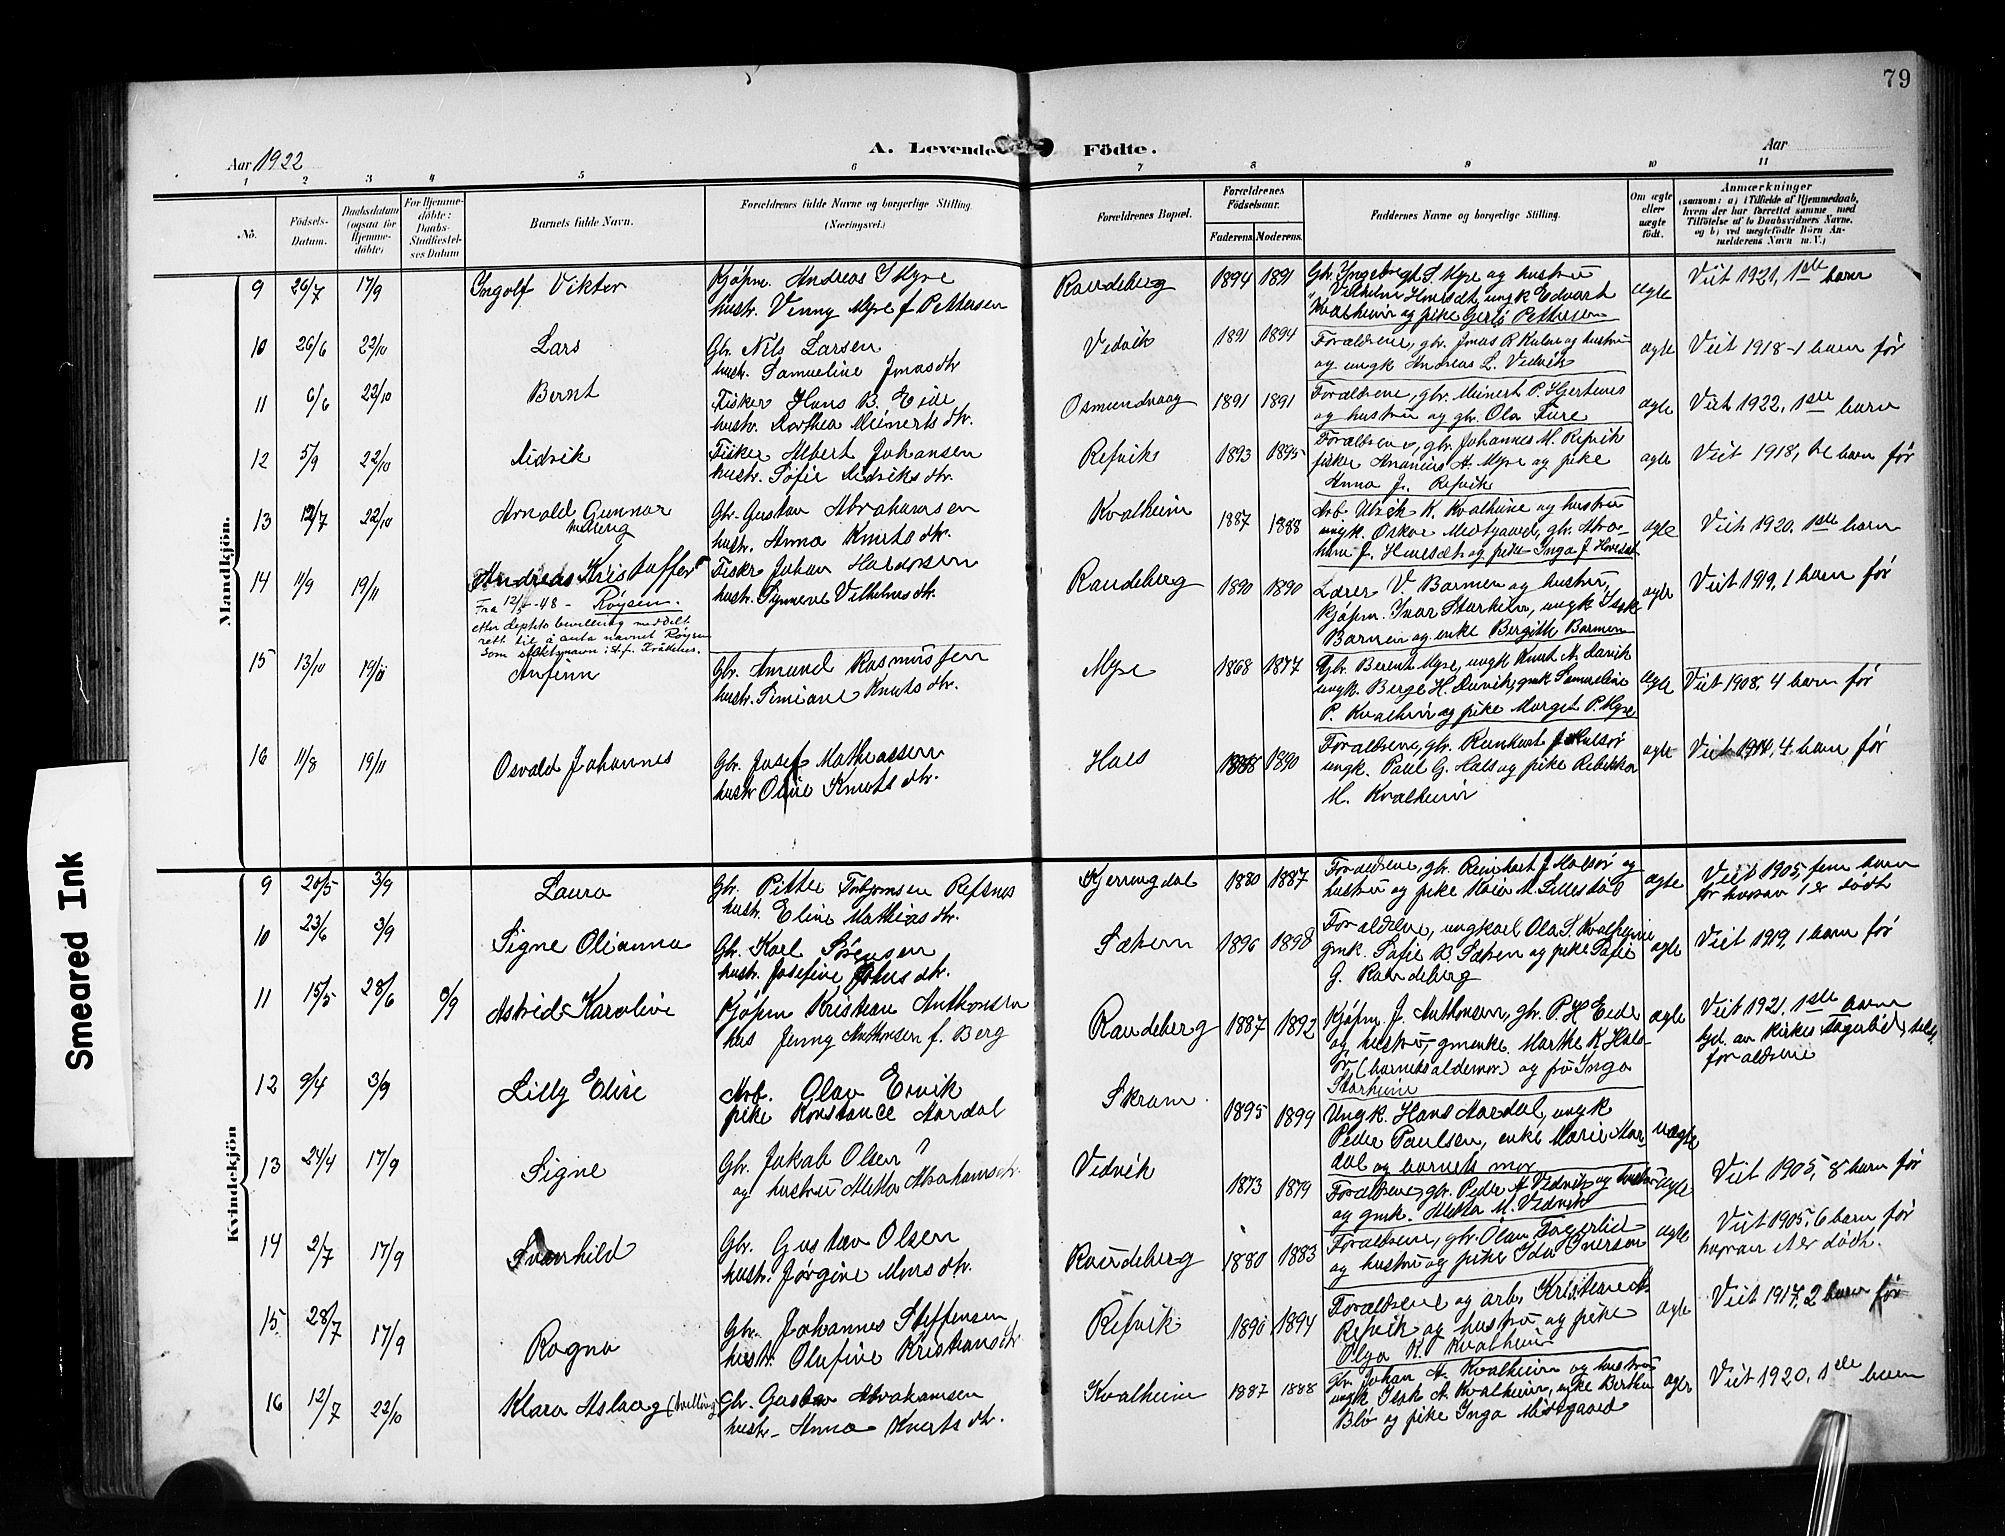 79
A. Levende Födte.
Aar 1922
Aar
1 2 3 4 5 6 7 8 9 10 11
Nö.
Födsels-Datum.
Daabsdatum (ogsaa for Hjemmedöbte)
For Hjemmedöbte: Daabs-Stadfæstelses Datum
Barnets fulde Navn.
Forældrenes fulde Navne og borgerlige Stilling.
(Næringsvei.)
Forældrenes Bopæl.
Forældrenes Födselsaar.
Faderens. Moderens.
Faddernes Navne og borgerlige Stilling.
Om ægte eller uægte födt.
Anmærkninger
(saasom: a) i Tilfælde af Hjemmedaab, hvem der har forrettet samme med Tilföielse af to Daabsvidners Navne, og b) ved uegtefödte Börn Anmelderens Navn m. V.)
Mandkjön.
9 26/7 17/9 Ingolf Viktor Kjøpm. Andreas I Myre Raudeberg 1894 1891 Gbr. Ingebrigt S. Myre og hustru ægte Viet 1921, 1ste barn
hustr. Venny Myre f Pettersen
Vilhelm Havsdt, ungk Edvart
Kvalheim og pike Gerli Pettersen
10 26/6 22/10 Lars Gbr. Nils Larsen Vedvik 1891 1894 Forældrene, gbr. Jonas R Kulen og hustru ægte Viet 1918 - 1 barn før
hustr. Samueline Jonasdtr og ungk Andreas L. Vedvik
11 6/6 22/10 Bernt Fisker Hans B. Eide Osmundvaag 1891 1891 Forældrene, gbr. Meinert P. Hjertenes ægte Viet 1922, 1ste barn
hustr. Dorthea Meinertsdtr. og hustru og gbr. Ola Fure
12 5/9 22/10 Didrik Fisker Albert Johansen Refvik 1893 1895 Forældrene, gbr. Johannes M. Refvik ægte Viet 1918, to barn før
hustr. Sofie Didriksdtr. fisker Ananias A. Myre og pike
Anna J. Refvik
13 12/7 22/10 Arnold Gunnar Gbr. Gustav Abrahamsen Kvalheim 1887 1888 Arb Ulrik K. Kvalheim og hustru ægte Viet 1920. 1ste barn
tvilling hustr. Anna Knutsdtr. ungk. Oskar Midtgaard, gbr. Abra-
ham J. Havsdt og pike Inga J Hovsdt
14 11/9 19/11 Andreas Kristoffer Fisker Johan Haldorsen Raudeberg 1890 1890 Lærer V. Barmen og hustru, ægte Viet 1919, 1 barn før
Fra 12/5-48 - Røysen. hustr. Synneve Vilhelmsdtr. kjøpm. Ivar Starheim, ungk Isak
etter depts bevilling meddelt Barmen og enke Bergith Barmen
rett til å anta navnet Røysen
som slektsnavn i h.f. Kråkenes.
15 13/10 19/11 Anfinn Gbr. Amund Rasmussen Myre 1868 1877 Gbr. Berent Myre, ungk Knut A. Davik ægte Viet 1908, 4 barn før
hustr. Simiane Knutsdtr. ungk. Berge H. Davik, gmk Samueline
P. Kvalheim og pike Margot P. Myre
16 11/8 19/11 Osvald Johannes Gbr. Josef Mathiassen Hals 1888 1890 Forældrene, gbr. Reinhart J Halsør ægte Viet 1910, 4 barn før
hustr Oline Knutsdtr. ungk. Paul G. Hals og pike Rebekka
M. Kvalheim
Kvindekjön
9 20/5 3/9 Laura Gbr. Pitter Torbjørnsen Refsnes Kjerringdal 1880 1887 Forældrene, gbr. Reinhart J Halsør og ægte Viet 1905, fem barn
hustr. Eline Mathiasdtr. hustru og pike før hvorav 1 er dødt
10 23/6 3/9 Signe Olianna Gbr. Karl Sørensen Sætern 1896 1898 Forældrene, ungkarl Ola S. Kvalheim ægte Viet 1919, 1 barn før
hustr. Josefine gmk. Sofie B. Sætern og pike Sofie
G. Raudeberg
11 15/5 28/6 8/9 Astrid Karoline Kjøpm Kristian Anthonsen Raudeberg 1887 1892 Kjøpm. J. Anthonsen, gbr. P. H Eide ægte Viet 1921. 1ste barn
hus Jenny Anthonsen f. Berg og hustru, gmenke. Marthe K Hals-
ør (barnets oldemor) og frø Inga
Starheim
12 9/4 3/9 Lilly Elise Arb. Olav Ervik Skram 1895 1899 Ungk. Hans Aardal, ungk uægte
pike Konstance Aardal Peder Paulsen, enke Marie Aar-
dal og barnets mor
13 24/4 17/9 Signe Gbr. Jakob Olsen Vedvik 1873 1879 Forældrene, gbr. Peder A Vedvik og hustru ægte Viet 1905, 8 barn før
og hustru Mette Abrahamsdtr og gmk. Mette M. Vedvik
14 2/7 17/9 Svanhild Gbr. Gustav Olsen Raudeberg 1880 1883 Forældrene, gbr. Olam Fagerlid ægte Viet 1905, 6 barn før
hustr. Jørgine Monsdtr. og hustru og pike Ida Iversen hvorav et er dødt.
15 28/7 17/9 Ragna Gbr. Johannes Steffensen Refvik 1890 1894 Forældrene og arb. Kristian A. ægte Viet 1917, 2 barn før
hustr. Olufine Kristiansdtr Refvik og hustru og pike
Olga K. Kvalheim
16 12/7 22/10 Klara Aslaug (tvilling) Gbr. Gustav Abrahamsen Kvalheim 1887 1888 Gbr. Johan A. Kvalheim og hustru ægte Viet 1920, 1ste barn
hustr. Anna Knutsdtr. ungk. Isak A. Kvalheim, enke Berthe
Blø og pike Inga Midtgaard
Smeared Ink